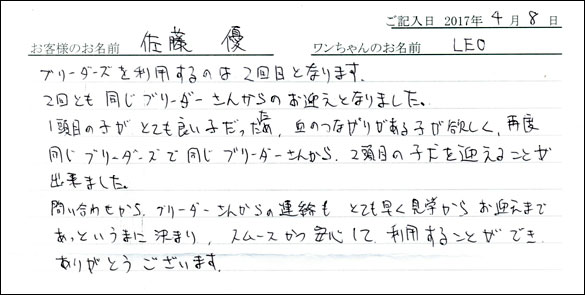 ご記入日 2017年 4月 8日
お客様のお名前 佐藤 優 ワンちゃんのお名前 LEO
ブリーダーズを利用するのは2回目となります。
2回とも同じブリーダーさんからのお迎えとなりました。
1頭目の子がとても良い子だったため、血のつながりがある子が欲しく、再度
同じブリーダーズで同じブリーダーさんから、2頭目の子を迎えることが
出来ました。
問い合わせから、ブリーダーさんからの連絡も とても早く見学からお迎えまで
あっというまに決まり、スムースかつ安心して利用することができ
ありがとうございます。